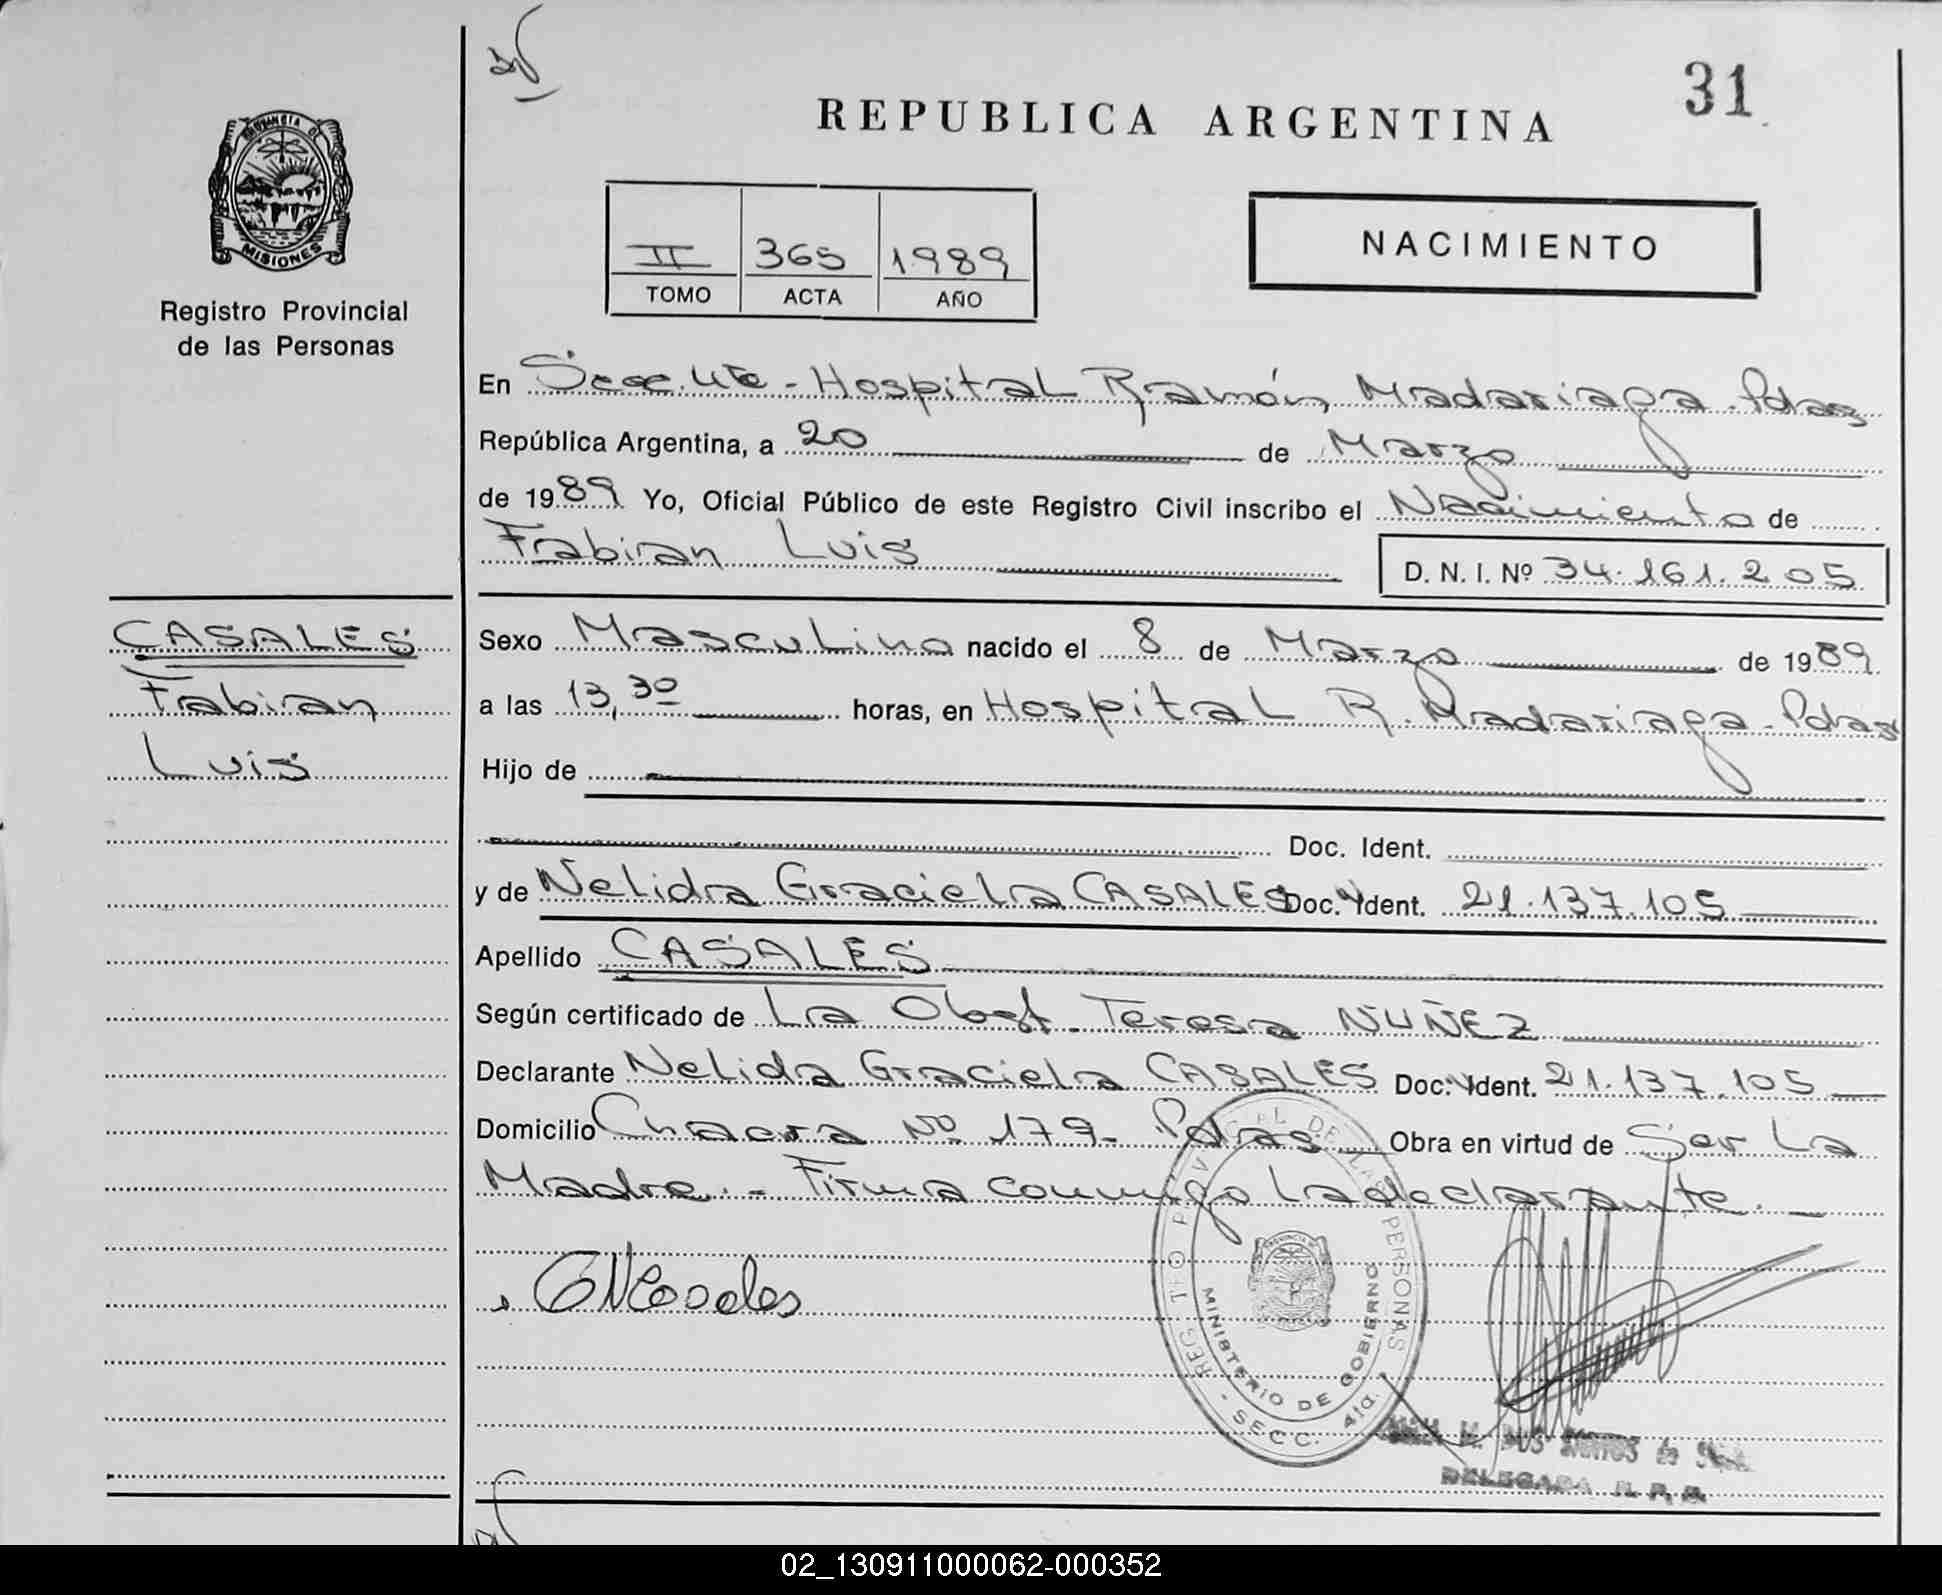 31
REPUBLICA ARGENTINA
PROVINCIA DE
MISIONES
Registro Provincial
de las Personas
II 365 1989
TOMO ACTA AÑO
NACIMIENTO
En Secc. 4ta - Hospital Ramón Madariaga. Pdas
República Argentina, a 20 de Marzo
de 1989 Yo, Oficial Público de este Registro Civil inscribo el Nacimiento de
Fabian Luis
D. N. I. Nº 34.161.205
CASALES
Fabian
Luis
Sexo Masculino nacido el 8 de Marzo de 1989
a las 13,30 horas, en Hospital R. Madariaga - Pdas
Hijo de
Doc. Ident.
y de Nelida Graciela CASALES Doc. Ident. 21.137.105
Apellido CASALES
Según certificado de La Obst. Teresa NUÑEZ
Declarante Nelida Graciela CASALES Doc. Ident. 21.137.105
Domicilio Chacra Nº 179 - Pdas Obra en virtud de Ser La
Madre. - Firma conmigo La declarante.
REG. PROVINCIAL DE LAS PERSONAS
MINISTERIO DE GOBIERNO
- SECC. 4ta. -
DELEGADA R. P. P.
02_130911000062-000352